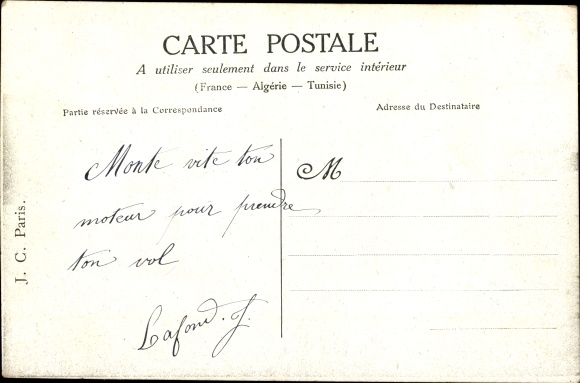 CARTE POSTALE
A utiliser seulement dans le service intérieur
(France — Algérie — Tunisie)
Partie réservée à la Correspondance
Adresse du Destinataire
Monte vite ton
moteur pour prendre
ton vol
Lafond. J.
M
J. C. Paris.